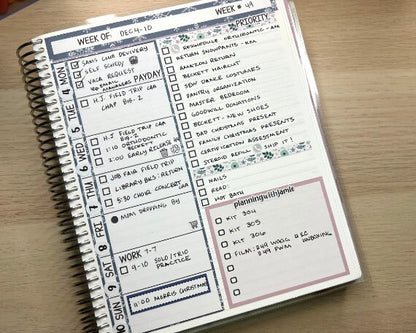 WEEK OF: DEC 4-10
WEEK # 49
MON
4
SAMS CLUB DELIVERY
SELF SCHED
VACA REQUEST
EMAIL
PAYDAY
TUE
5
H.J. FIELD TRIP CRA
CHAT BIG. I
WED
6
H.J. FIELD TRIP CRA
BIG. I
1:10 ORTHODONTIC
BECKETT
2:00 EARLY RELEASE
THU
7
JOB FAIR FIELD TRIP
LIBRARY BKS: RETURN
5:30 CHOIR CONCERT
FRI
8
MIMI DROPPING BY
SAT
9
WORK 7-7
9-10 SOLO/TRIO
PRACTICE
SUN
10
11:00 MORRIS CHRISTMAS
PRIORITY
RESCHEDULE ORTHODONTIC - KM
RETURN SNOWPANTS - KM
AMAZON RETURN
BECKETT HAIRCUT
SEW DANCE COSTUMES
PANTRY ORGANIZATION
MASTER BEDROOM
GOODWILL DONATIONS
BECKETT - NEW SHOES
DAD CHRISTMAS PRESENTS
FAMILY CHRISTMAS PRESENTS
CERTIFICATION ASSESSMENT
STEROID REFILL SHIP IT!
NAILS
READ:
HOT BATH
planningwithjamie
KIT 304
KIT 305
KIT 306
FILM: 249 WKLG DEC
249 PWM UNBOXING